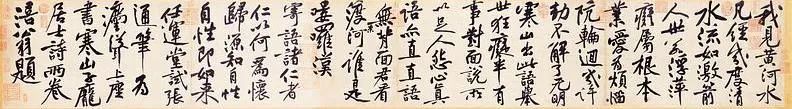 我見黃河水
凡經幾度清
水流如激箭
人世若浮萍
癡屬根本
業愛為煩惱
坑輪迴幾許
劫不解了无明
寒山出此語舉
世狂癡半有
事對面說所
以足人怨心真
語亦直直語
無背面君看
渡河誰是
嘍羅漢
寄語諸仁者
仁以何為懷
歸源知自性
自性即如來
任運堂試張
通筆為
灋聳上座
書寒山子龐
居士詩兩卷
涪翁題